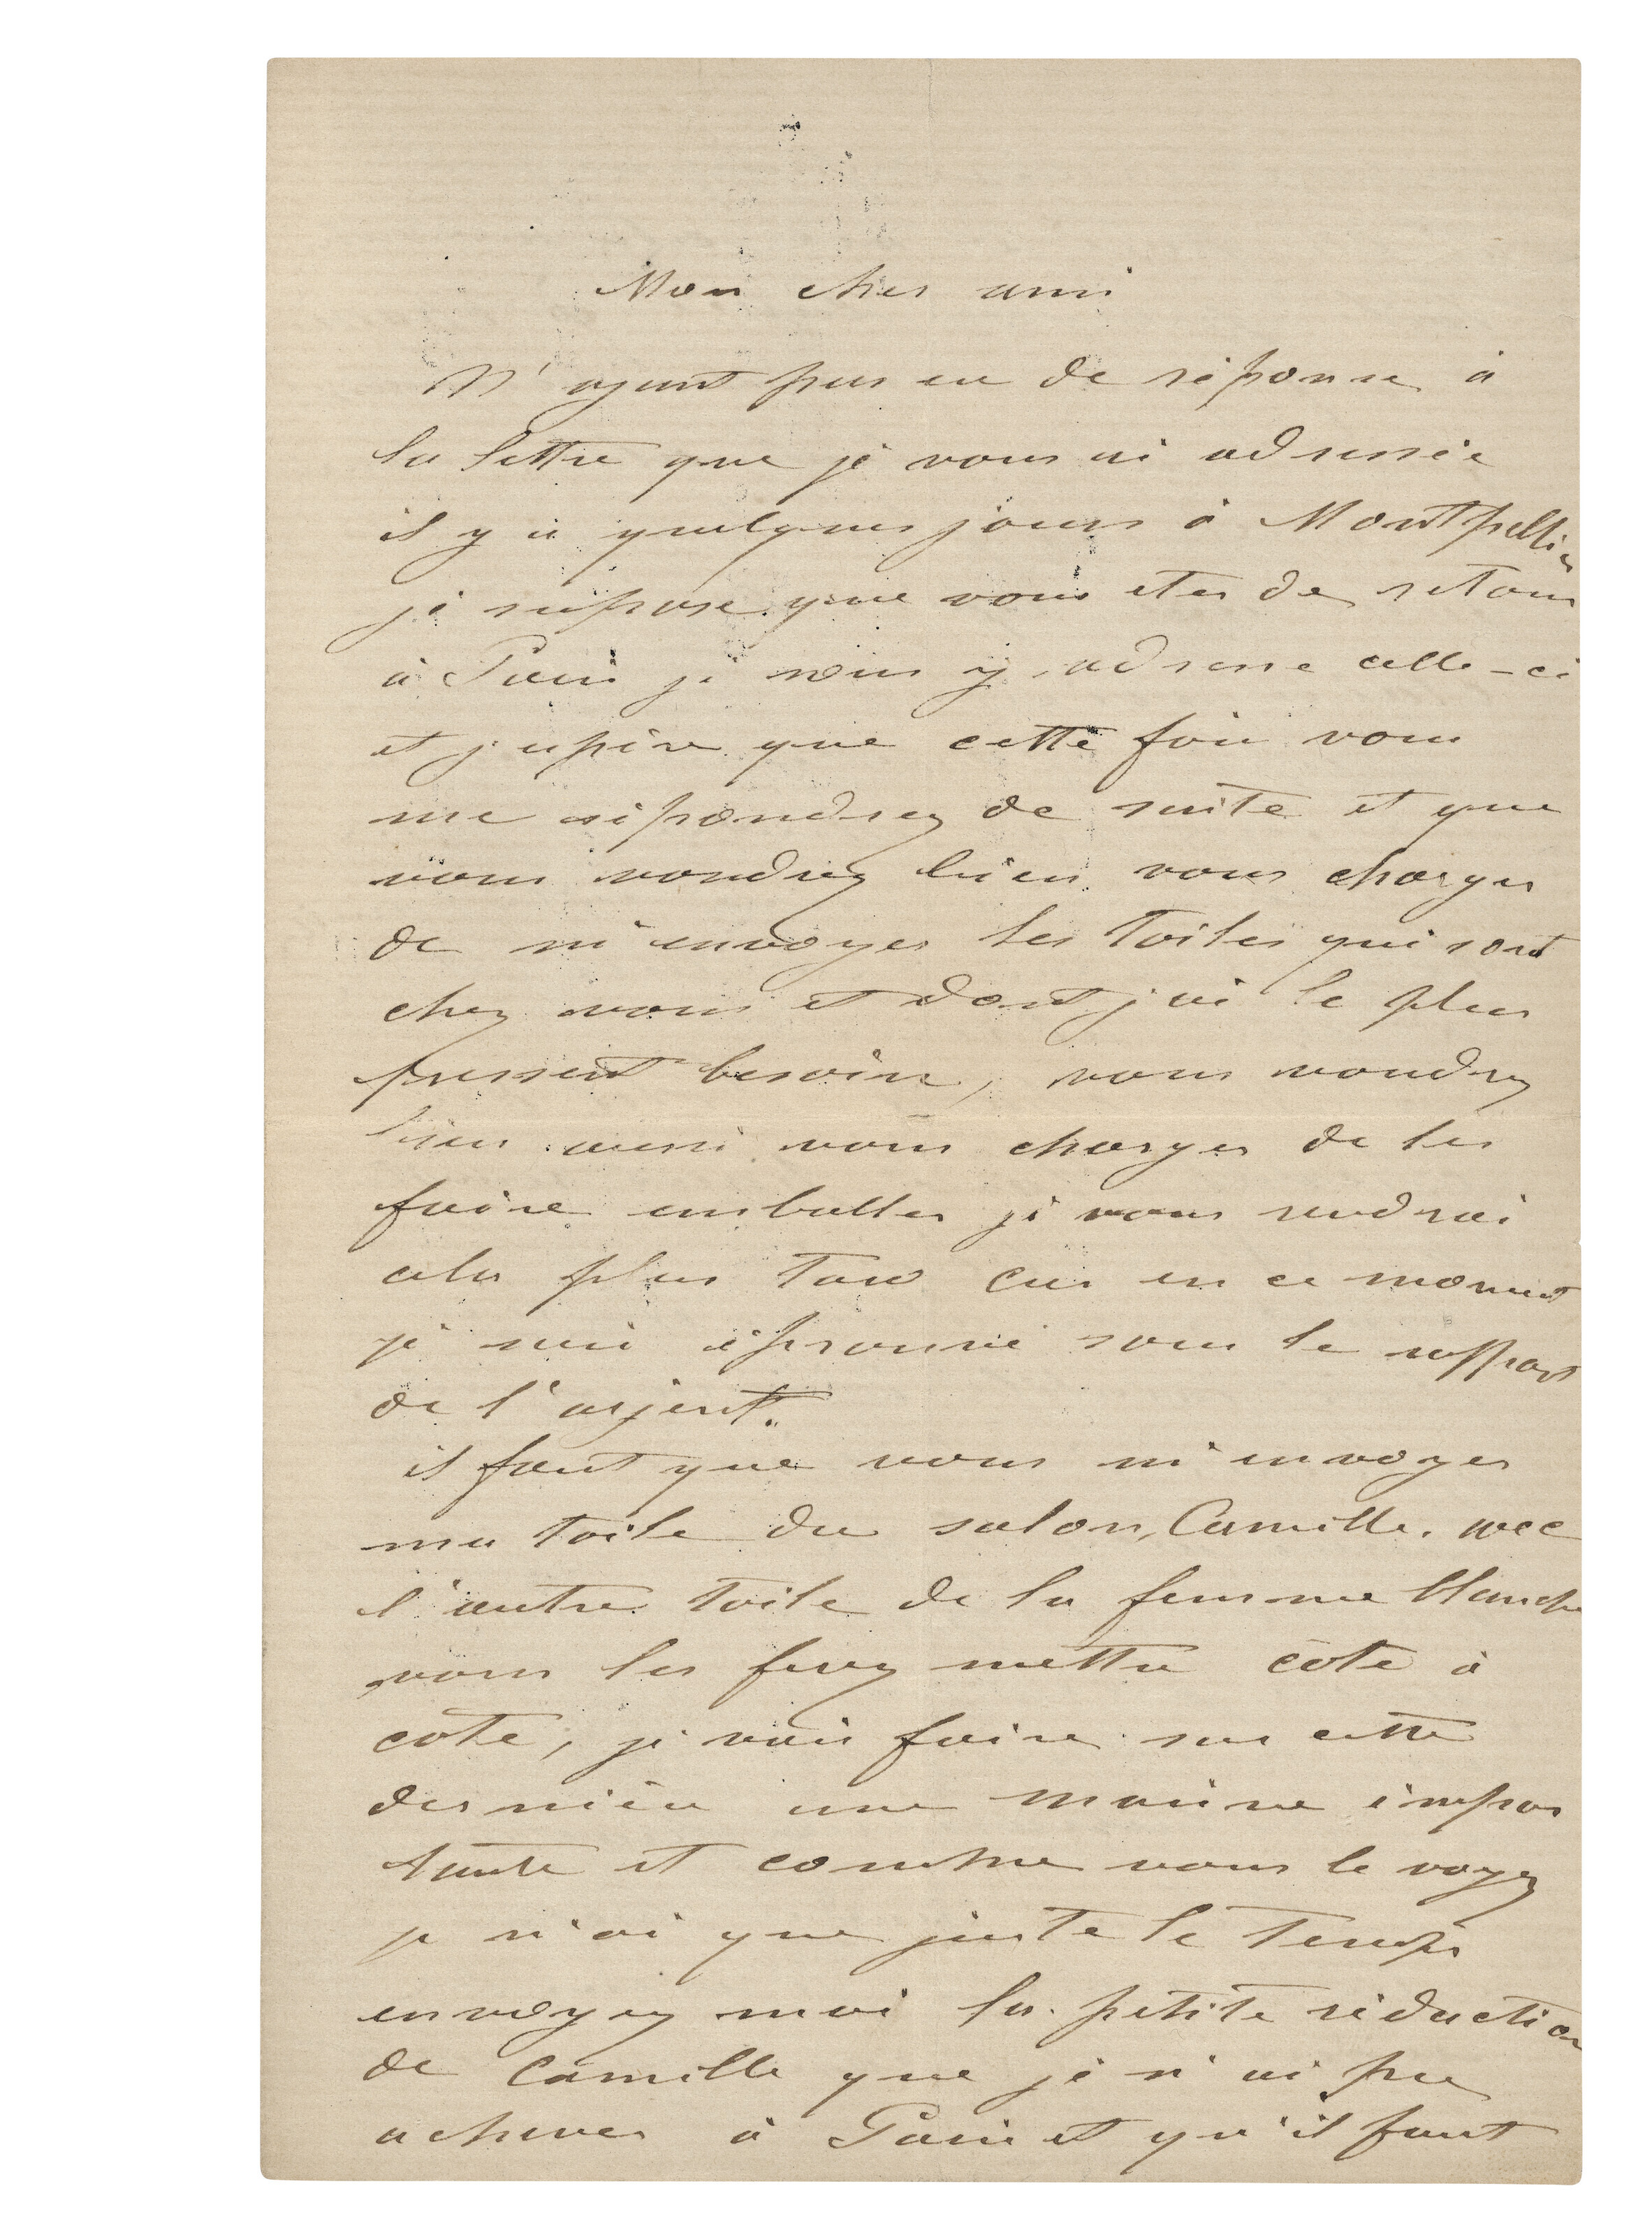 Mon cher ami
N'ayant pas eu de réponse à
la lettre que je vous ai adressée
il y a quelques jours à Montpellier
je supose que vous etes de retour
à Paris je vous y adresse celle-ci
et j'espère que cette fois vous
me répondrez de suite et que
vous voudrez bien vous charger
de m'envoyer les toiles qui sont
chez vous et dont j'ai le plus
pressent besoin, vous voudrez
bien aussi vous charger de les
faire emballer je vous rendrai
cela plus tard car en ce moment
je suis éprouvé sous le rapport
de l'arjent.
il faut que vous m'envoyer
ma toile du salon, Camille. avec
l'autre toile de la femme blanche
vous les ferez mettre côte à
cote, je vais faire sur cette
dernière une marine impor
tante et comme vous le voyez
je n'ai que juste le temps
envoyez moi la petite réduction
de Camille que je n'ai pu
achever à Paris et qu'il faut